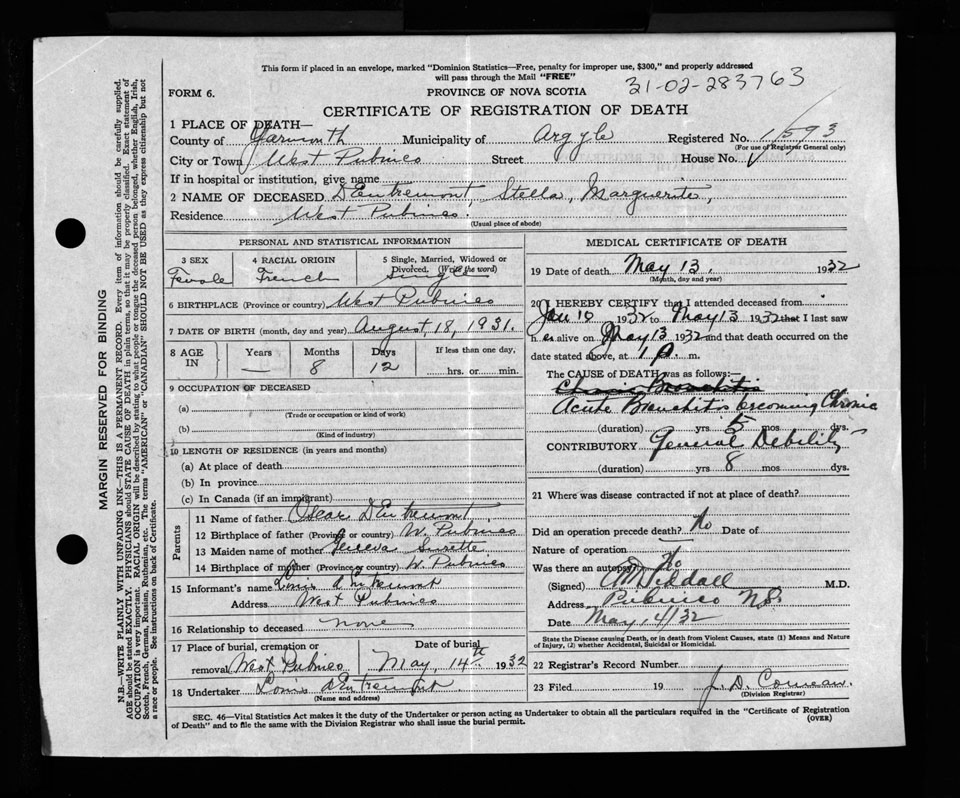 This form if placed in an envelope, marked "Dominion Statistics—Free, penalty for improper use, $300," and properly addressed
will pass through the Mail "FREE"
31-02-283763
FORM 6.
PROVINCE OF NOVA SCOTIA
CERTIFICATE OF REGISTRATION OF DEATH
1 PLACE OF DEATH—
County of Yarmouth Municipality of Argyle Registered No. 1593
(For use of Registrar General only)
City or Town West Pubnico Street House No.
If in hospital or institution, give name
2 NAME OF DECEASED D'Entremont, Stella, Marguerite,
Residence West Pubnico.
(Usual place of abode)
PERSONAL AND STATISTICAL INFORMATION
3 SEX 4 RACIAL ORIGIN 5 Single, Married, Widowed or Divorced. (Write the word)
Female French Single
6 BIRTHPLACE (Province or country) West Pubnico
7 DATE OF BIRTH (month, day and year) August, 18, 1931.
8 AGE IN Years Months Days If less than one day,
— 8 12 hrs. or min.
9 OCCUPATION OF DECEASED
(a)
(Trade or occupation or kind of work)
(b)
(Kind of industry)
10 LENGTH OF RESIDENCE (in years and months)
(a) At place of death
(b) In province
(c) In Canada (if an immigrant)
Parents
11 Name of father Oscar D'Entremont,
12 Birthplace of father (Province or country) W. Pubnico
13 Maiden name of mother Geneva Surette
14 Birthplace of mother (Province or country) W. Pubnico
15 Informant's name Louis d'Entremont
Address West Pubnico
16 Relationship to deceased none
17 Place of burial, cremation or removal West Pubnico Date of burial May, 14th 1932
18 Undertaker Louis d'Entremont.
(Name and address)
MEDICAL CERTIFICATE OF DEATH
19 Date of death May 13, 1932
(Month, day and year)
20 I HEREBY CERTIFY that I attended deceased from
Jan 10 1932 to May 13 1932 that I last saw
h er alive on May 13 1932 and that death occurred on the
date stated above, at 1 P. m.
The CAUSE of DEATH was as follows:—
Chronic Bronchitis
Acute Bronchitis becoming Chronic
(duration) yrs 5 mos dys.
CONTRIBUTORY General Debility
(duration) yrs 8 mos dys.
21 Where was disease contracted if not at place of death?
Did an operation precede death? No Date of
Nature of operation
Was there an autopsy? No
(Signed) M.D.
Address Pubnico N.S.
Date May 14/32
State the Disease causing Death, or in death from Violent Causes, state (1) Means and Nature
of Injury, (2) whether Accidental, Suicidal or Homicidal.
22 Registrar's Record Number
23 Filed 19 J. D. Comeau.
(Division Registrar)
SEC. 46—Vital Statistics Act makes it the duty of the Undertaker or person acting as Undertaker to obtain all the particulars required in the "Certificate of Registration
of Death" and to file the same with the Division Registrar who shall issue the burial permit.
(OVER)
MARGIN RESERVED FOR BINDING
N.B.—WRITE PLAINLY WITH UNFADING INK—THIS IS A PERMANENT RECORD. Every item of information should be carefully supplied.
AGE should be stated EXACTLY. PHYSICIANS should STATE CAUSE OF DEATH in plain terms, so that it may be properly classified. Exact statement of
OCCUPATION is very important. RACIAL ORIGIN will be described by stating to what people or tongue the deceased person belonged, whether English, Irish,
Scotch, French, German, Russian, Ruthenian, etc. The terms "AMERICAN" or "CANADIAN" SHOULD NOT BE USED as they express citizenship but not
a race or people. See instructions on back of Certificate.